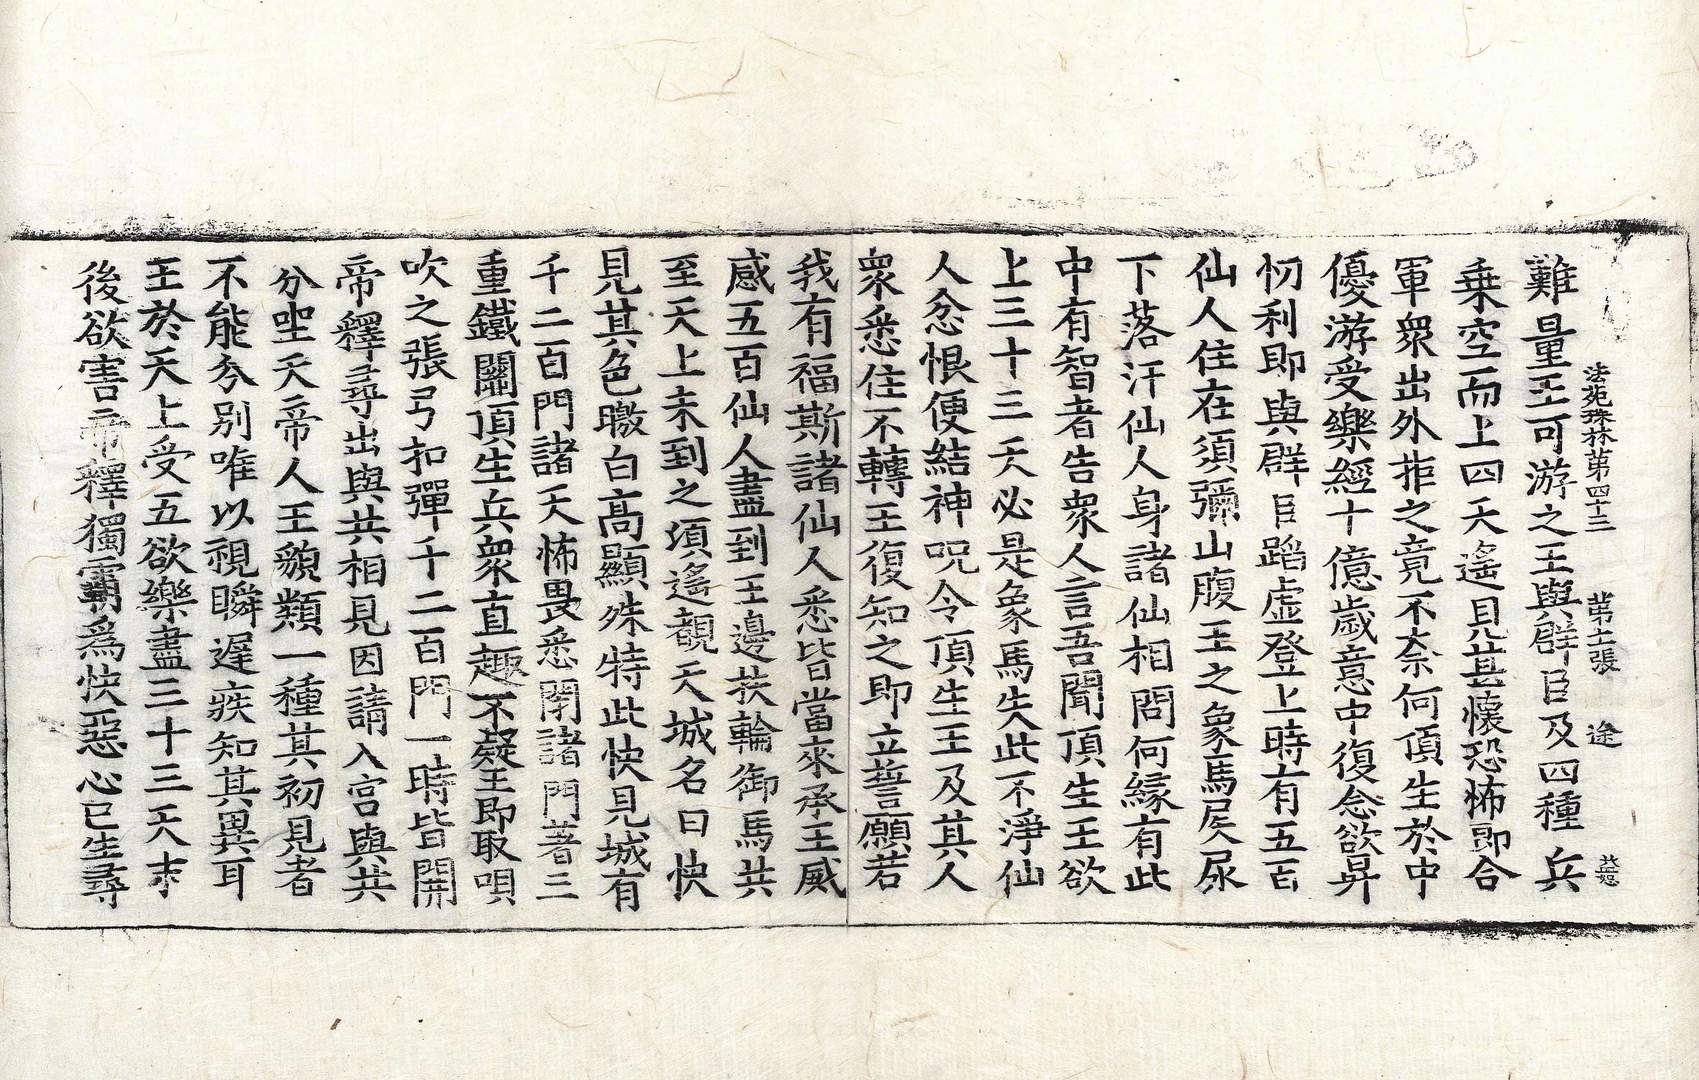 法苑珠林第四十三　第十二張　途
難量王可游之王與群臣及四種兵
乗空而上四天遙見甚懷恐怖即合
軍衆出外非之竟不奈何頂生於中
優游受樂經十億歲意中復念欲昇
忉利即與群臣蹈虛登上時有五百
仙人住在須彌山腹王之象馬屎尿
下落汗仙人身諸仙相問何緣有此
中有智者告衆人言吾聞頂生王欲
上三十三天必是象馬失此不淨仙
人忿恨便結神呪令頂生王及其人
衆悉住不轉王復知之即立誓願若
我有福斯諸仙人悉皆當來承王威
感五百仙人盡到王邊扶輪御馬共
至天上未到之須遙覩天城名曰快
見其色曒白高顯殊特此快見城有
千二百門諸天怖畏悉閉諸門著三
重鐵關頂生兵衆直趣不礙王即取唄
吹之張弓扣彈千二百門一時皆開
帝釋尋出與共相見因請入宮與共
分坐天帝人王貌類一種其初見者
不能分別唯以視瞬遲疾知其異耳
王於天上受五欲樂盡三十三天末
後欲害帝釋獨霸爲快惡心已生尋